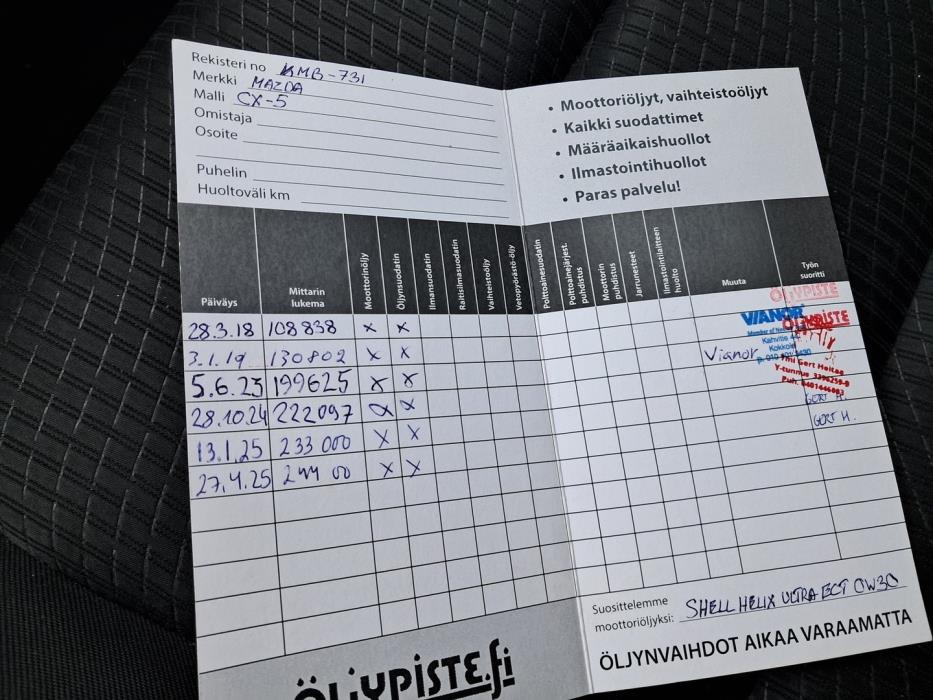 Rekisteri no KMB-731
Merkki MAZDA
Malli CX-5
Omistaja
Osoite
Puhelin
Huoltoväli km
• Moottoriöljyt, vaihteistoöljyt
• Kaikki suodattimet
• Määräaikaishuollot
• Ilmastointihuollot
• Paras palvelu!
Päiväys Mittarin lukema Moottoriöljy Öljynsuodatin Ilmansuodatin Raitisilmasuodatin Vaihteistoöljy Vetopyörästö-öljy Polttoainesuodatin Polttoainejärjest. puhdistus Moottorin puhdistus Jarrunesteet Ilmastointilaitteen huolto Muuta Työn suoritti
ÖLJYPISTE
28.3.18 108838 x x VIANOR ÖLJYPISTE
Kokkola
3.1.19 130802 x x Vianor
5.6.23 199625 x x Gert Heitag
Y-tunnus
Puh.
28.10.24 222097 x x GERT H.
13.1.25 233 000 x x GERT H.
27.4.25 244 00 x x
Suosittelemme
moottoriöljyksi: SHELL HELIX ULTRA ECT 0W30
ÖLJYNVAIHDOT AIKAA VARAAMATTA
ÖLJYPISTE.fi